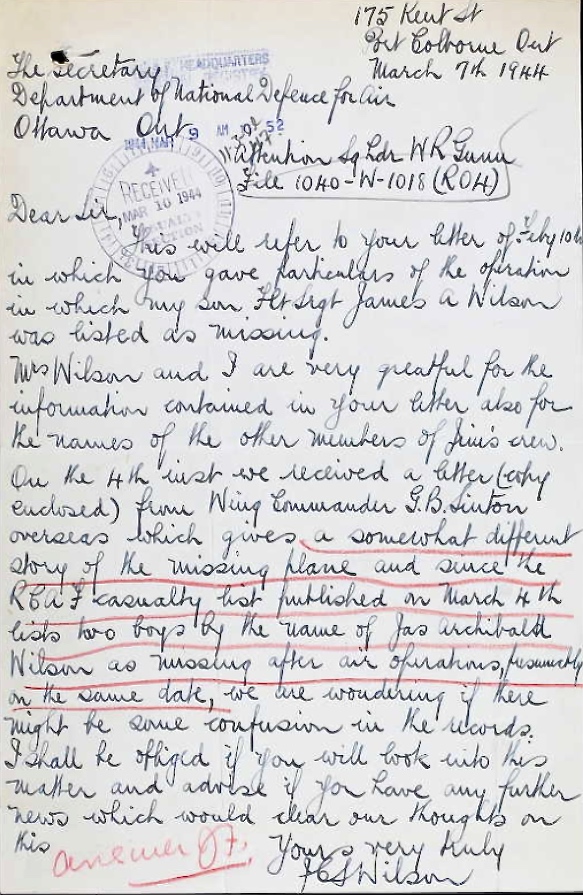 175 Kent St
Port Colborne Ont
March 7th 1944
The Secretary
HEADQUARTERS
Department of National Defence for Air
Ottawa Ont
1944 MAR 9 AM 10 52
Attention Sq Ldr W R Gunn
File 1040-W-1018 (RO4)
RECEIVED
MAR 10 1944
Dear Sir,
This will refer to your letter of Feby 10th
in which you gave particulars of the operation
in which my son Flt Srgt James A Wilson
was listed as missing.
Mrs Wilson and I are very greatful for the
information contained in your letter also for
the names of the other members of Jim's crew.
On the 4th inst we received a letter (copy
enclosed) from Wing Commander G.B. Sinton
overseas which gives a somewhat different
story of the missing plane and since the
RCAF casualty list published on March 4th
lists two boys by the name of Jas Archibald
Wilson as missing after air operations, presumably
on the same date, we are wondering if there
might be some confusion in the records.
I shall be obliged if you will look into this
matter and advise if you have any further
news which would clear our thoughts on
this
Yours very truly
Wilson